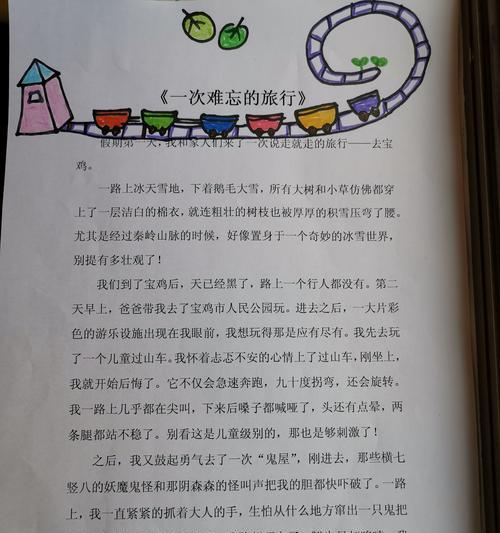 《一次难忘的旅行》
假期第一天，我和家人们来了一次说走就走的旅行——去宝
鸡。
一路上冰天雪地，下着鹅毛大雪，所有大树和小草仿佛都穿
上了一层洁白的棉衣，就连粗壮的树枝也被厚厚的积雪压弯了腰。
尤其是经过秦岭山脉的时候，好像置身于一个奇妙的冰雪世界，
别提有多壮观了！
我们到了宝鸡后，天已经黑了，路上一个行人都没有。第二
天早上，爸爸带我去了宝鸡市人民公园玩。进去之后，一大片彩
色的游乐设施出现在我眼前，我想玩得那是应有尽有。我先去玩
了一个儿童过山车。我怀着忐忑不安的心情上了过山车，刚坐上，
我就开始后悔了。它不仅会急速奔跑，九十度拐弯，还会旋转。
我一路上几乎都在尖叫，下来后嗓子都喊哑了，头还有点晕，两
条腿都站不稳了。别看这是儿童级别的，那也是够刺激了！
之后，我又鼓起勇气去了一次“鬼屋”，刚进去，那些横七
竖八的妖魔鬼怪和那阴森森的怪叫声把我的胆都快吓破了。一路
上，我一直紧紧的抓着大人的手，生怕从什么地方窜出一只鬼把